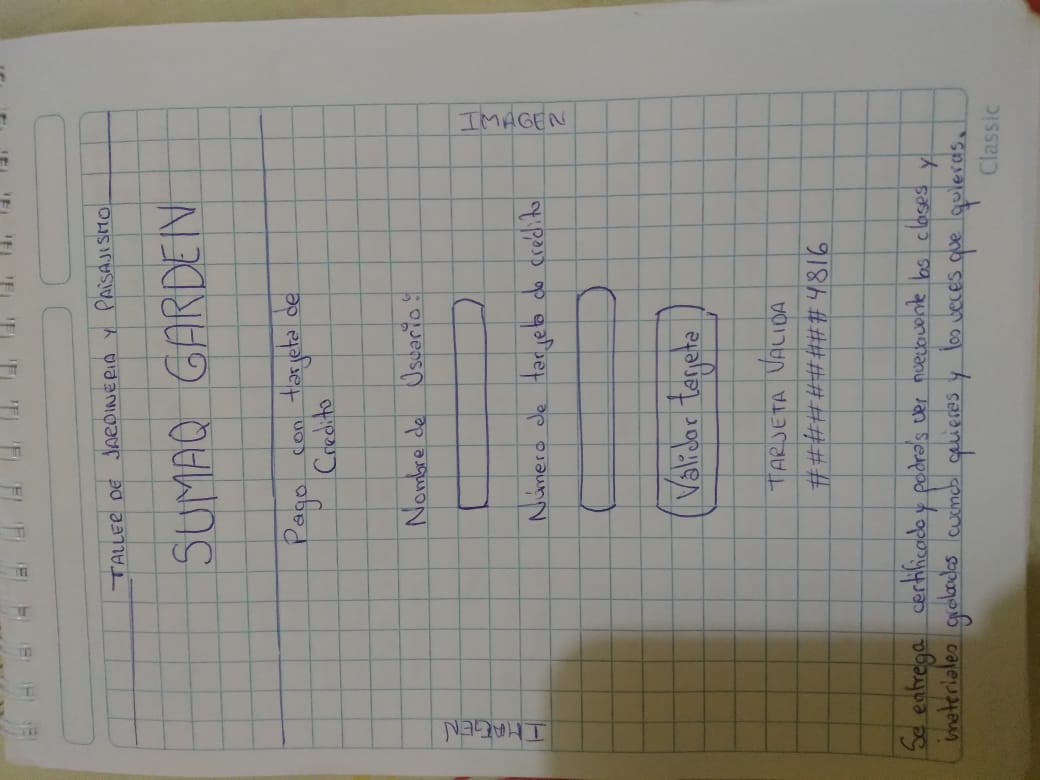 TALLER DE JARDINERIA Y PAISAJISMO
SUMAQ GARDEN
Pago con tarjeta de
Credito
Nombre de Usuario:
IMAGEN
IMAGEN
Número de tarjeta de crédito
Validar tarjeta
TARJETA VALIDA
############4816
Se entrega certificado y podrás ver nuevamente las clases y
materiales grabados cuando quieras y las veces que quieras.
Classic